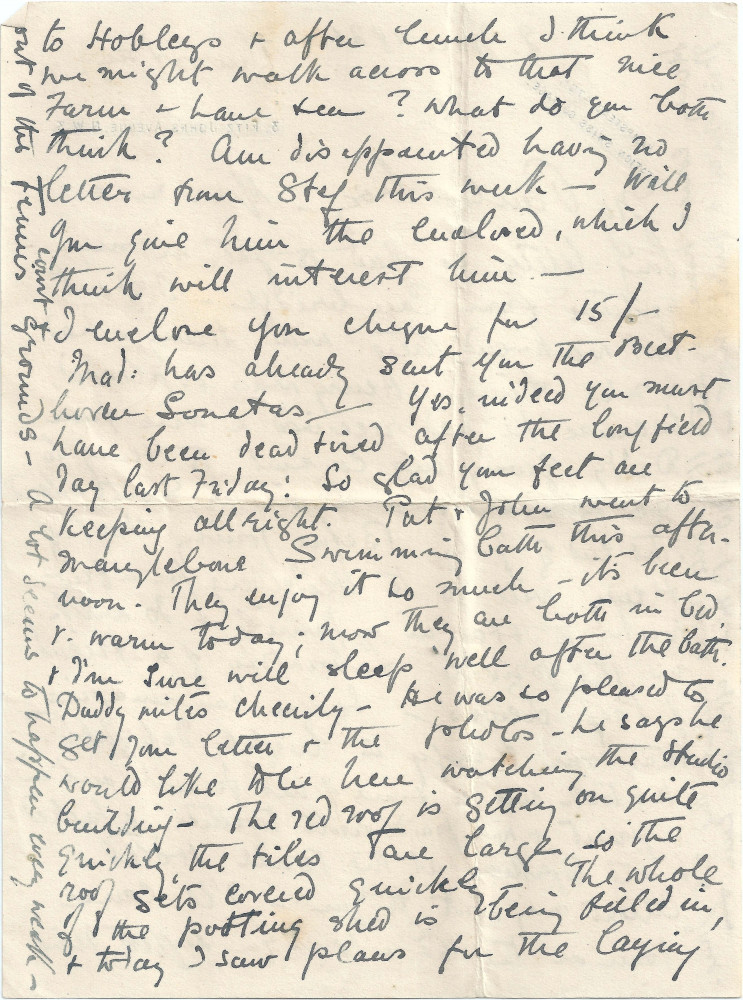 to Hobleys + after lunch I think
we might walk across to that nice
Farm + have tea? What do you both
think? Am disappointed having no
letter from Stef this week — Will
you give him the enclosed, which I
think will interest him. —
I enclose you cheque for 15/-
Mad: has already sent you the Beet-
hoven Sonatas — Yes, indeed you must
have been dead tired after the long field
day last Friday! So glad your feet are
keeping allright. Pat + John went to
Marylebone Swimming bath this after-
noon. They enjoy it so much — it's been
v. warm today; now they are both in bed
+ I'm sure will sleep well after the bath.
Daddy writes cheerily — He was so pleased to
get your letter + the photos — he says he
would like to be here watching the studio
building — The red roof is getting on quite
quickly, the tiles are large, so the
roof gets covered quickly. The whole
of the potting shed is being filled in,
+ today I saw plans for the laying
out of the Tennis
court + grounds — A lot seems to happen every week —